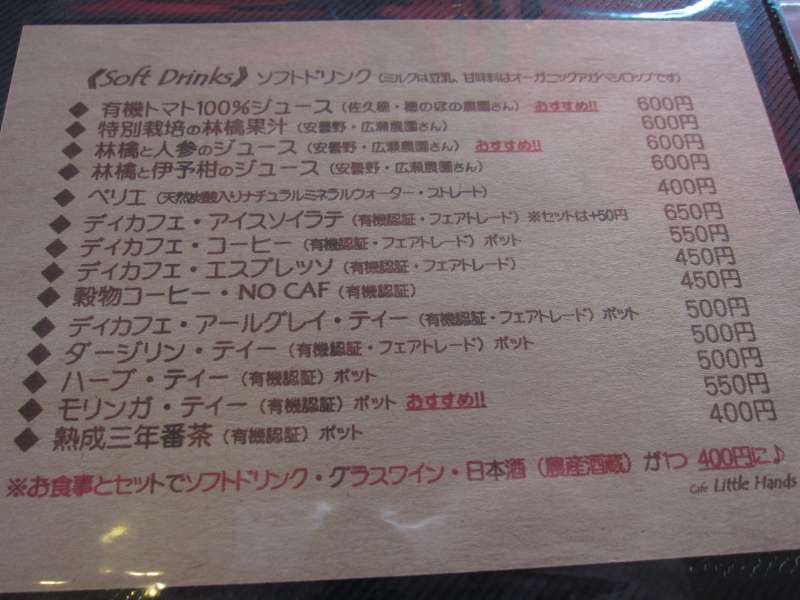 《Soft Drinks》 ソフトドリンク (ミルクは豆乳、甘味料はオーガニックアガベシロップです)
◆ 有機トマト100%ジュース (佐久穂・穂のほの農園さん) おすすめ!! 600円
◆ 特別栽培の林檎果汁 (安曇野・広瀬農園さん) 600円
◆ 林檎と人参のジュース (安曇野・広瀬農園さん) おすすめ!! 600円
◆ 林檎と伊予柑のジュース (安曇野・広瀬農園さん) 600円
◆ ペリエ (天然炭酸入りナチュラルミネラルウォーター・ストレート) 400円
◆ ディカフェ・アイスソイラテ (有機認証・フェアトレード) ※セットは+50円 650円
◆ ディカフェ・コーヒー (有機認証・フェアトレード) ポット 550円
◆ ディカフェ・エスプレッソ (有機認証・フェアトレード) 450円
◆ 穀物コーヒー・NO CAF (有機認証) 450円
◆ ディカフェ・アールグレイ・ティー (有機認証・フェアトレード) ポット 500円
◆ ダージリン・ティー (有機認証・フェアトレード) ポット 500円
◆ ハーブ・ティー (有機認証) ポット 500円
◆ モリンガ・ティー (有機認証) ポット おすすめ!! 550円
◆ 熟成三年番茶 (有機認証) ポット 400円
※お食事とセットでソフトドリンク・グラスワイン・日本酒 (農産酒蔵) が1つ 400円に♪
Cafe Little Hands